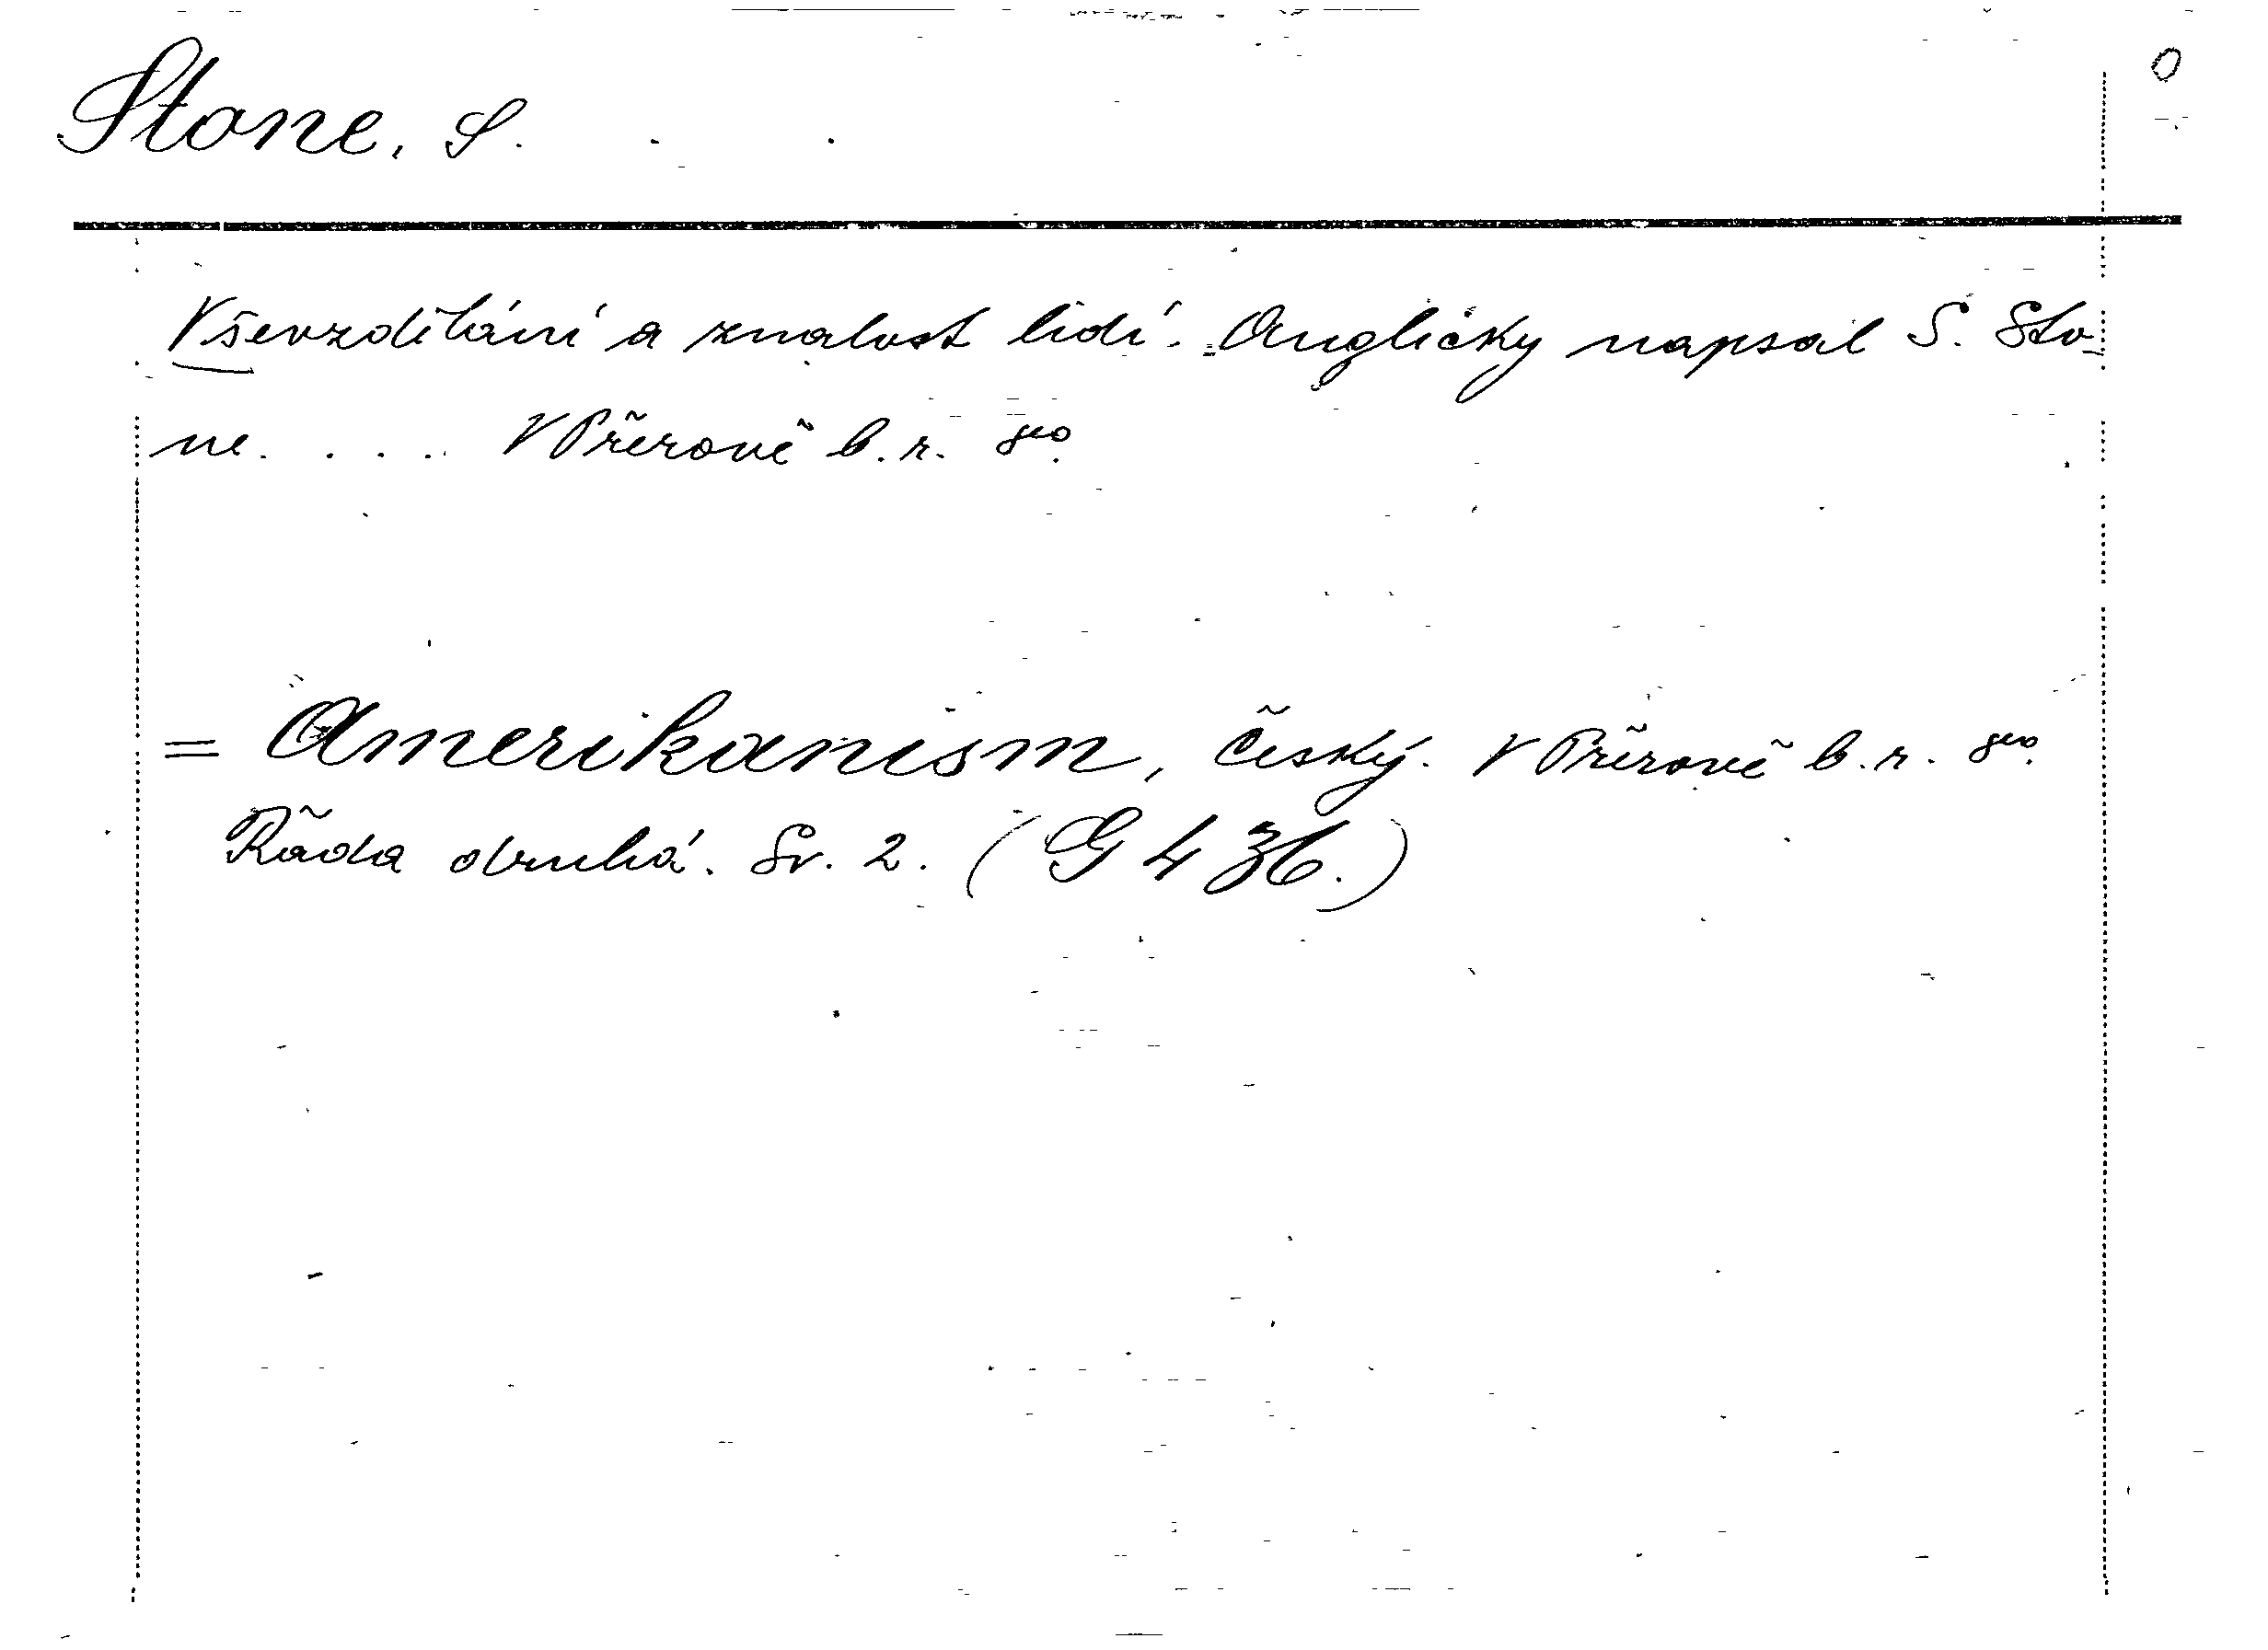 Stone, S.
0
Vševzdělání a znalost lidí. Anglicky napsal S. Sto-
ne. . . . V Přerově b. r. 8vo.
= Amerikanism, český. V Přerově b. r. 8vo.
Řada druhá. Sv. 2. (G 436.)